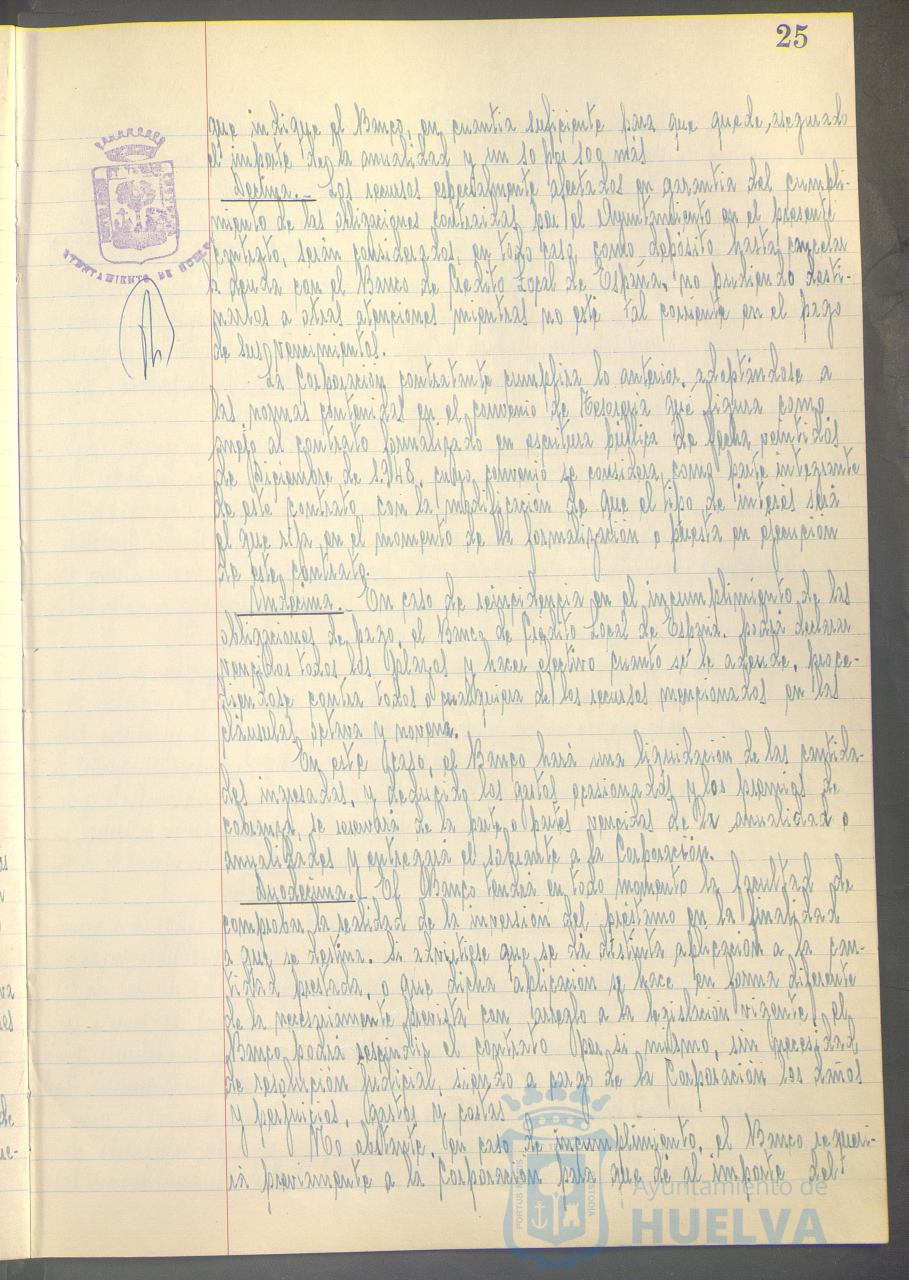 25
que indique el Banco, en cuantia suficiente para que quede, asegurado
el importe de la anualidad y un 10 por 100 más
Decima.- Los recursos especialmente afectados en garantia del cumpli-
miento de las obligaciones contraidas por el Ayuntamiento en el presente
contrato, serán considerados, en todo caso, como depósito hasta cancelar
la deuda con el Banco de Credito Local de España, no pudiendo desti-
narlos a otras atenciones mientras no esté al corriente en el pago
de sus vencimientos.
La Corporación contratante cumplira lo anterior, adaptándose a
las normas contenidas en el convenio de Tesoreria que figura como
anejo al contrato formalizado en escritura publica de fecha veintidós
de Diciembre de 1.948, cuyo convenio se considera como parte integrante
de este contrato, con la modificación de que el tipo de interés será
el que rija en el momento de la formalización o puesta en ejecución
de este contrato.
Undécima.- En caso de reincidencia en el incumplimiento de las
obligaciones de pago, el Banco de Crédito Local de España, podrá declarar
vencidos todos los plazos y hacer efectivo cuanto se le adeude, proce-
diendose contra todos o cualquiera de los recursos mencionados en las
cláusulas octava y novena.
En este caso, el Banco hará una liquidación de las cantida-
des ingresadas, y deducido los gastos ocasionados y los premios de
cobranza, se reservará de la parte o partes vencidas de la anualidad o
anualidades y entregará el sobrante a la Corporación.
Duodecima.- El Banco tendrá en todo momento la facultad de
comprobar la realidad de la inversión del préstamo en la finalidad
a que se destina. Si advirtiese que se dá distinta aplicación a la can-
tidad prestada, o que dicha aplicación se hace en forma diferente
de la necesariamente prevista con arreglo a la legislación vigente, el
Banco podrá rescindir el contrato por si mismo, sin necesidad
de resolución judicial, siendo a cargo de la Corporación los daños
y perjuicios, gastos y costas
No obstante, en caso de incumplimiento, el Banco requeri-
rá previamente a la Corporación para que dé al importe del
AYUNTAMIENTO DE HUELVA
Ayuntamiento de
HUELVA